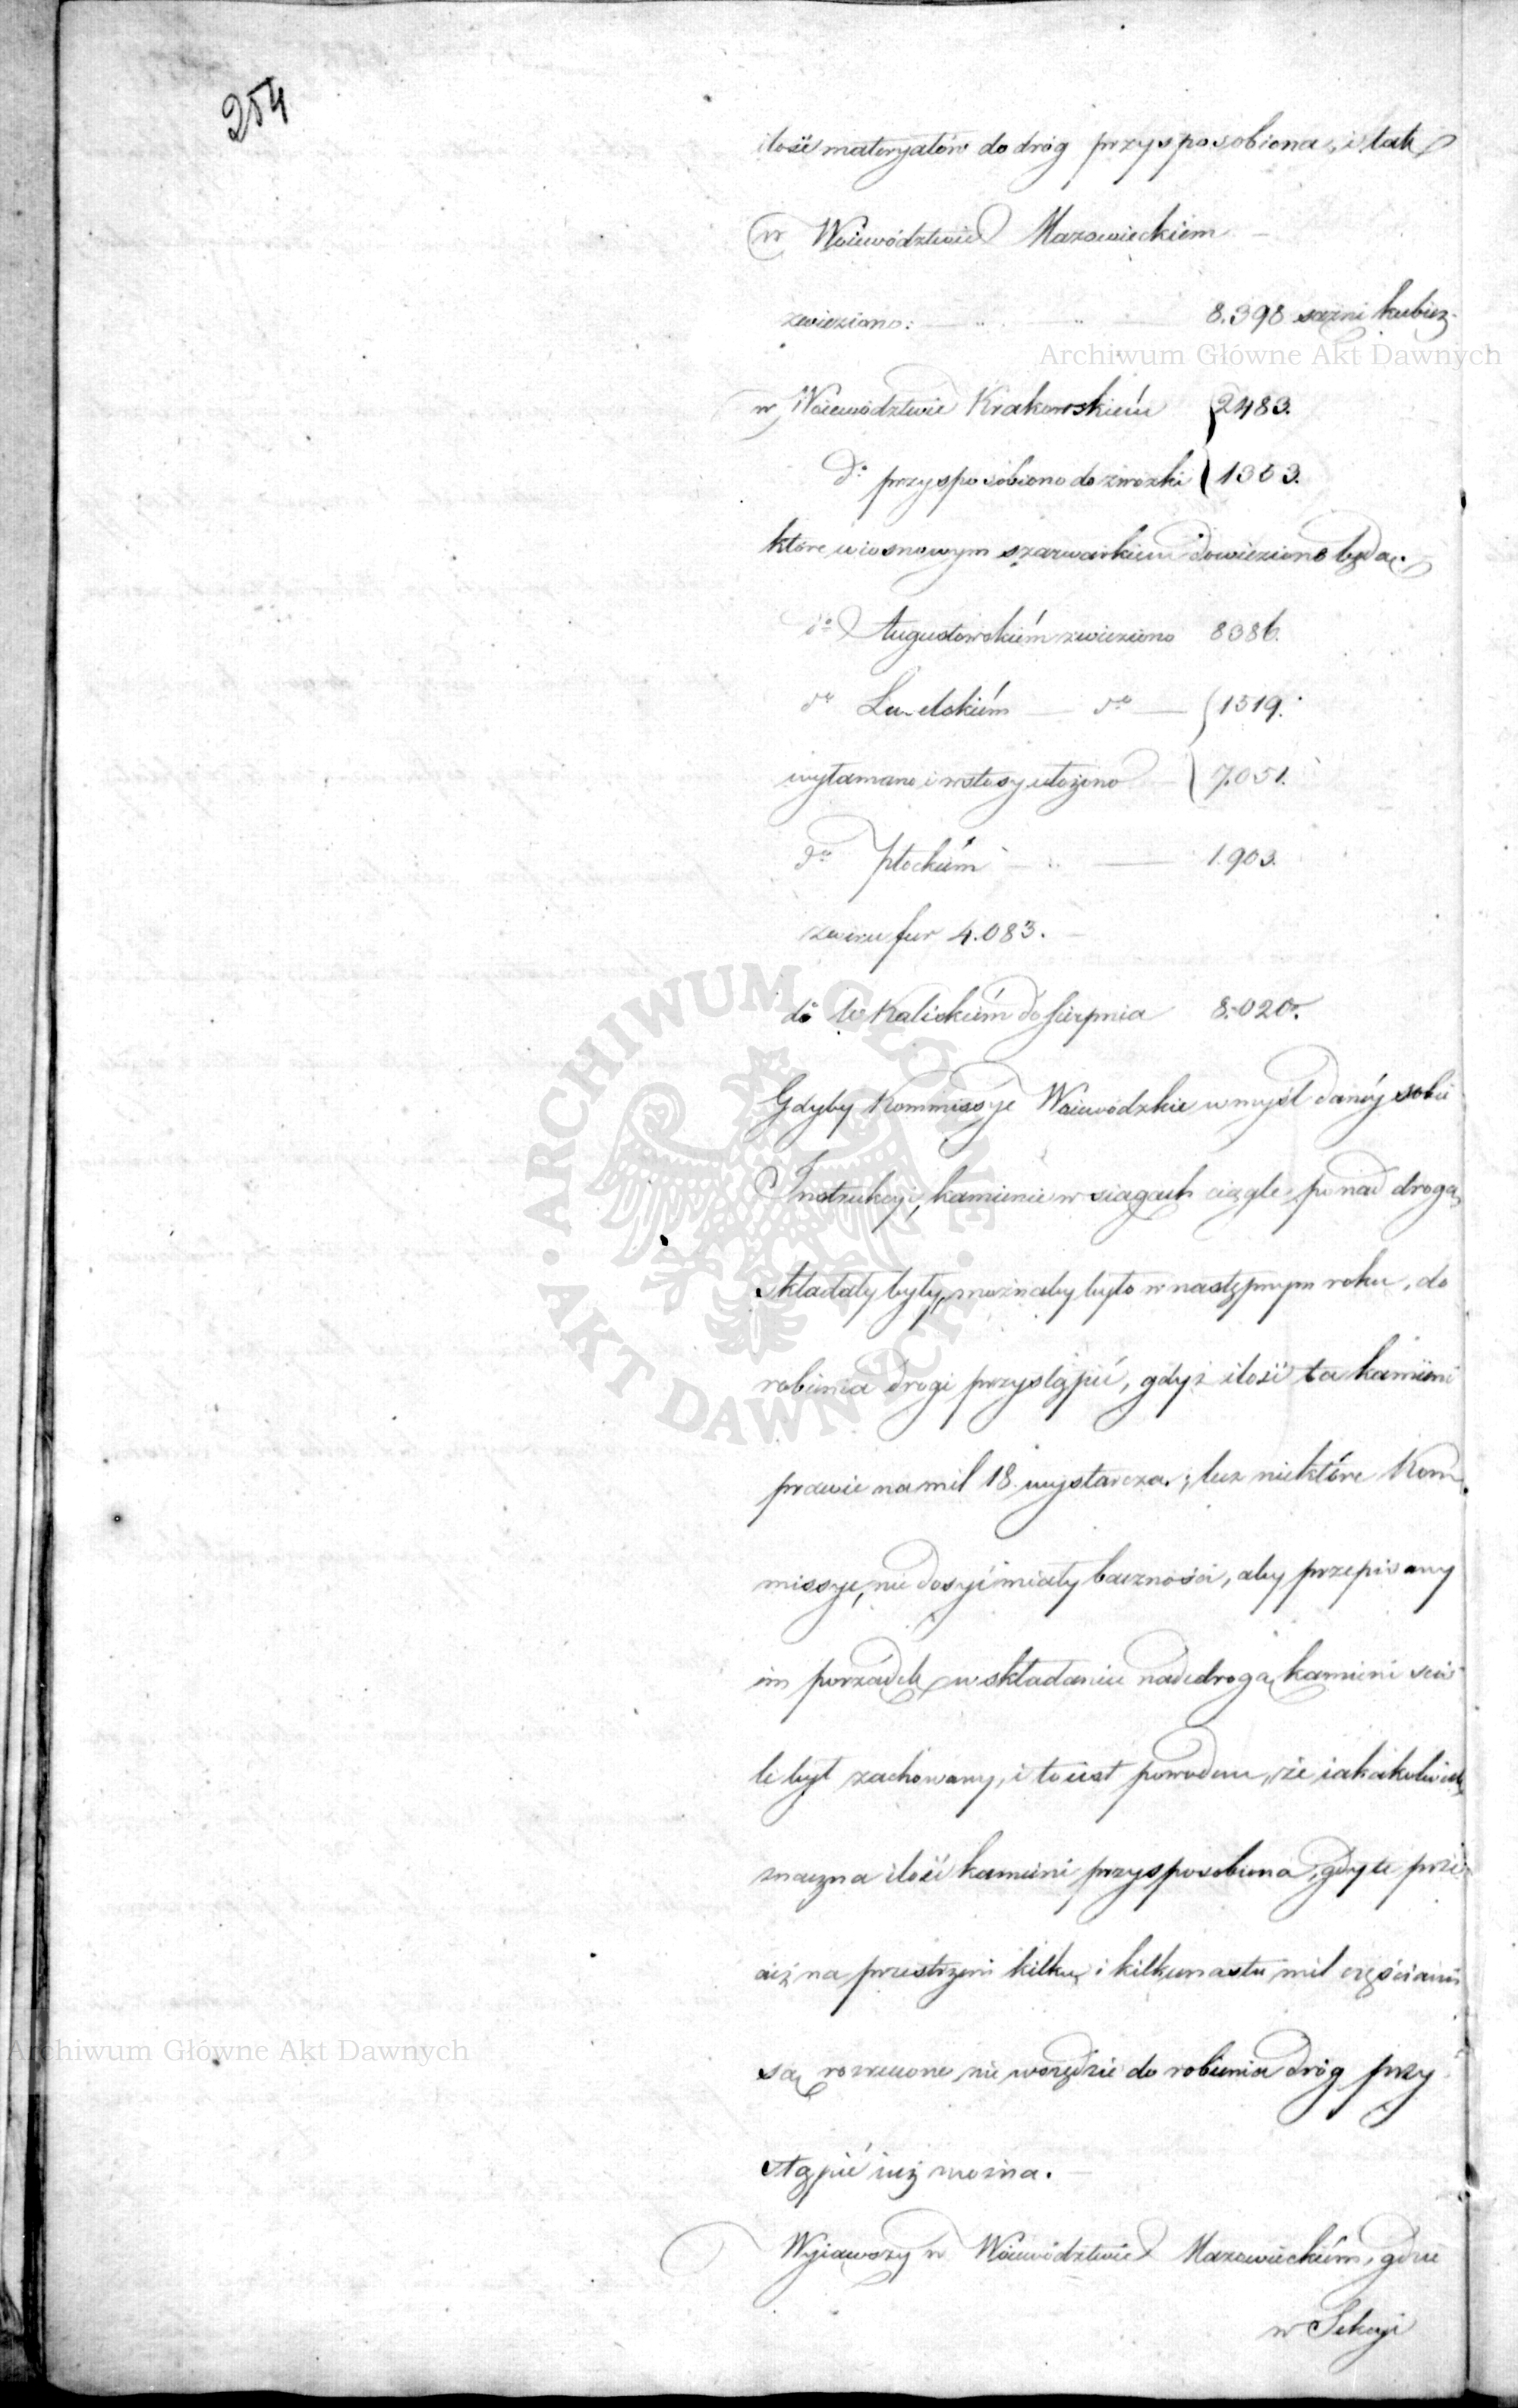 254
ilość materyałów do dróg przysposobiona, i tak
w Woiewództwie Mazowieckiém
zwieziono: 8.398 sążni kubicz.
Archiwum Główne Akt Dawnych
w Woiewództwie Krakowskiém 2483.
do przysposobiono do zwózki 1353.
które wiosnowym szarwarkiem dowiezione będą.
do Augustowskiém zwieziono 8386.
do Lubelskiém do 1519.
wyłamano i w stosy ułożono 7.051.
do Płockiém 1.903.
żwiru fur 4.083.
do w Kaliskiém do Sierpnia 8.020.
Gdyby Kommissye Woiewódzkie w myśl danéy sobie
Instrukcji, kamienie w siągach ciągle ponad drogą
składały były, możnaby było w następnym roku, do
robienia drogi przystąpić, gdyż ilość ta kamieni
prawie na mil 18. wystarcza; lecz niektóre Kom
missye, nie dosyć miały baczności, aby przepisany
im porządek w składaniu nad drogą kamieni ści
le był zachowany, i to iest powodem, że iakakolwiek
znaczna ilość kamieni przysposobiona, gdy te prze
cież na przestrzeni kilku i kilkunastu mil częściami
są rozrzucone nie wszędzie do robienia dróg przy
stąpić iuż można.
Wyiąwszy w Woiewództwie Mazowieckiém, gdzie
w Sekcyi
ARCHIWUM GŁÓWNE AKT DAWNYCH
Archiwum Główne Akt Dawnych